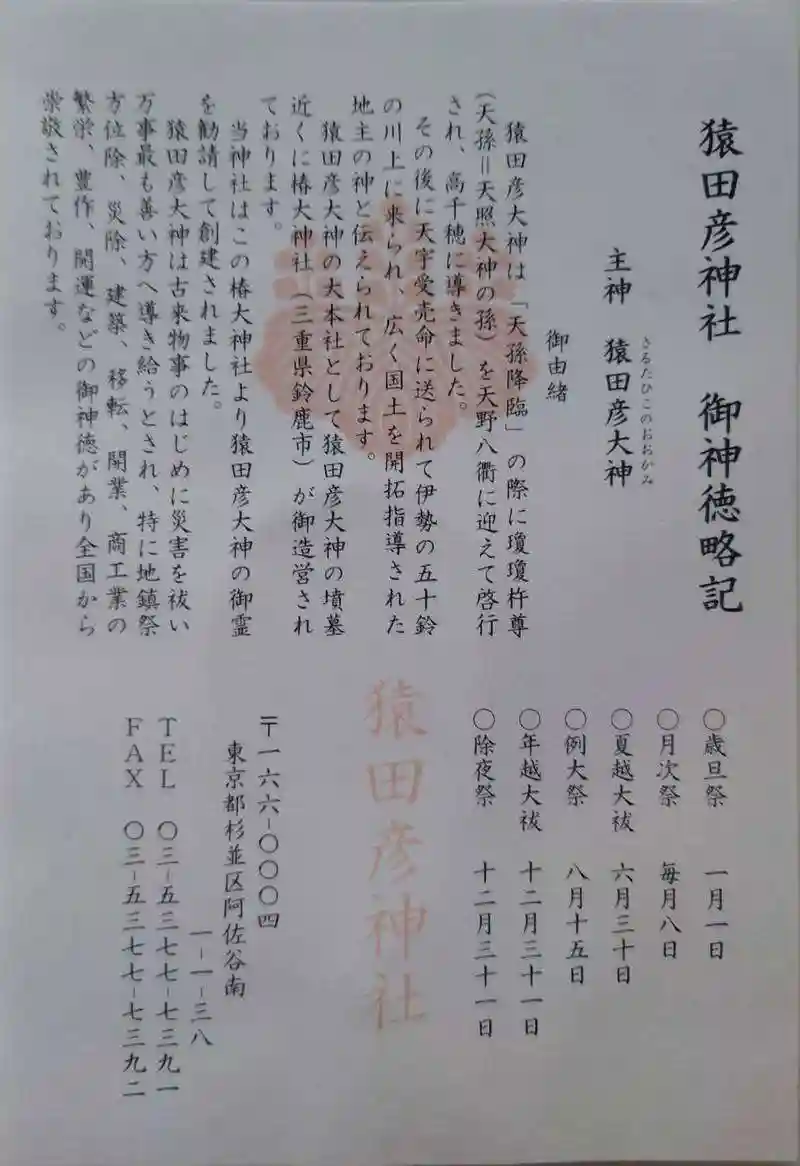 猿田彦神社 御神徳略記
主神 猿田彦大神
さるたひこのおおかみ
御由緒
猿田彦大神は「天孫降臨」の際に瓊瓊杵尊
(天孫＝天照大神の孫)を天野八衢に迎えて啓行
され、高千穂に導きました。
その後に天宇受売命に送られて伊勢の五十鈴
の川上に来られ、広く国土を開拓指導された
地主の神と伝えられております。
猿田彦大神の大本社として猿田彦大神の墳墓
近くに椿大神社(三重県鈴鹿市)が御造営され
ております。
当神社はこの椿大神社より猿田彦大神の御霊
を勧請して創建されました。
猿田彦大神は古来物事のはじめに災害を祓い
万事最も善い方へ導き給うとされ、特に地鎮祭
方位除、災除、建築、移転、開業、商工業の
繁栄、豊作、開運などの御神徳があり全国から
崇敬されております。
〇歳旦祭 一月一日
〇月次祭 毎月八日
〇夏越大祓 六月三十日
〇例大祭 八月十五日
〇年越大祓 十二月三十一日
〇除夜祭 十二月三十一日
猿田彦神社
〒一六六-〇〇〇四
東京都杉並区阿佐谷南
一-一-三八
TEL 〇三-五三七七-七三九一
FAX 〇三-五三七七-七三九二